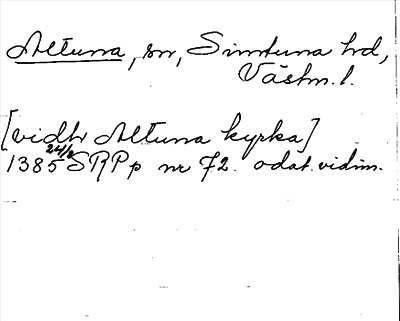 Altuna, sn, Simtuna hd,
Västm. l.
[vidh Altuna kyrka]
1385 24/2 SRPp nr 72. odat. vidim.